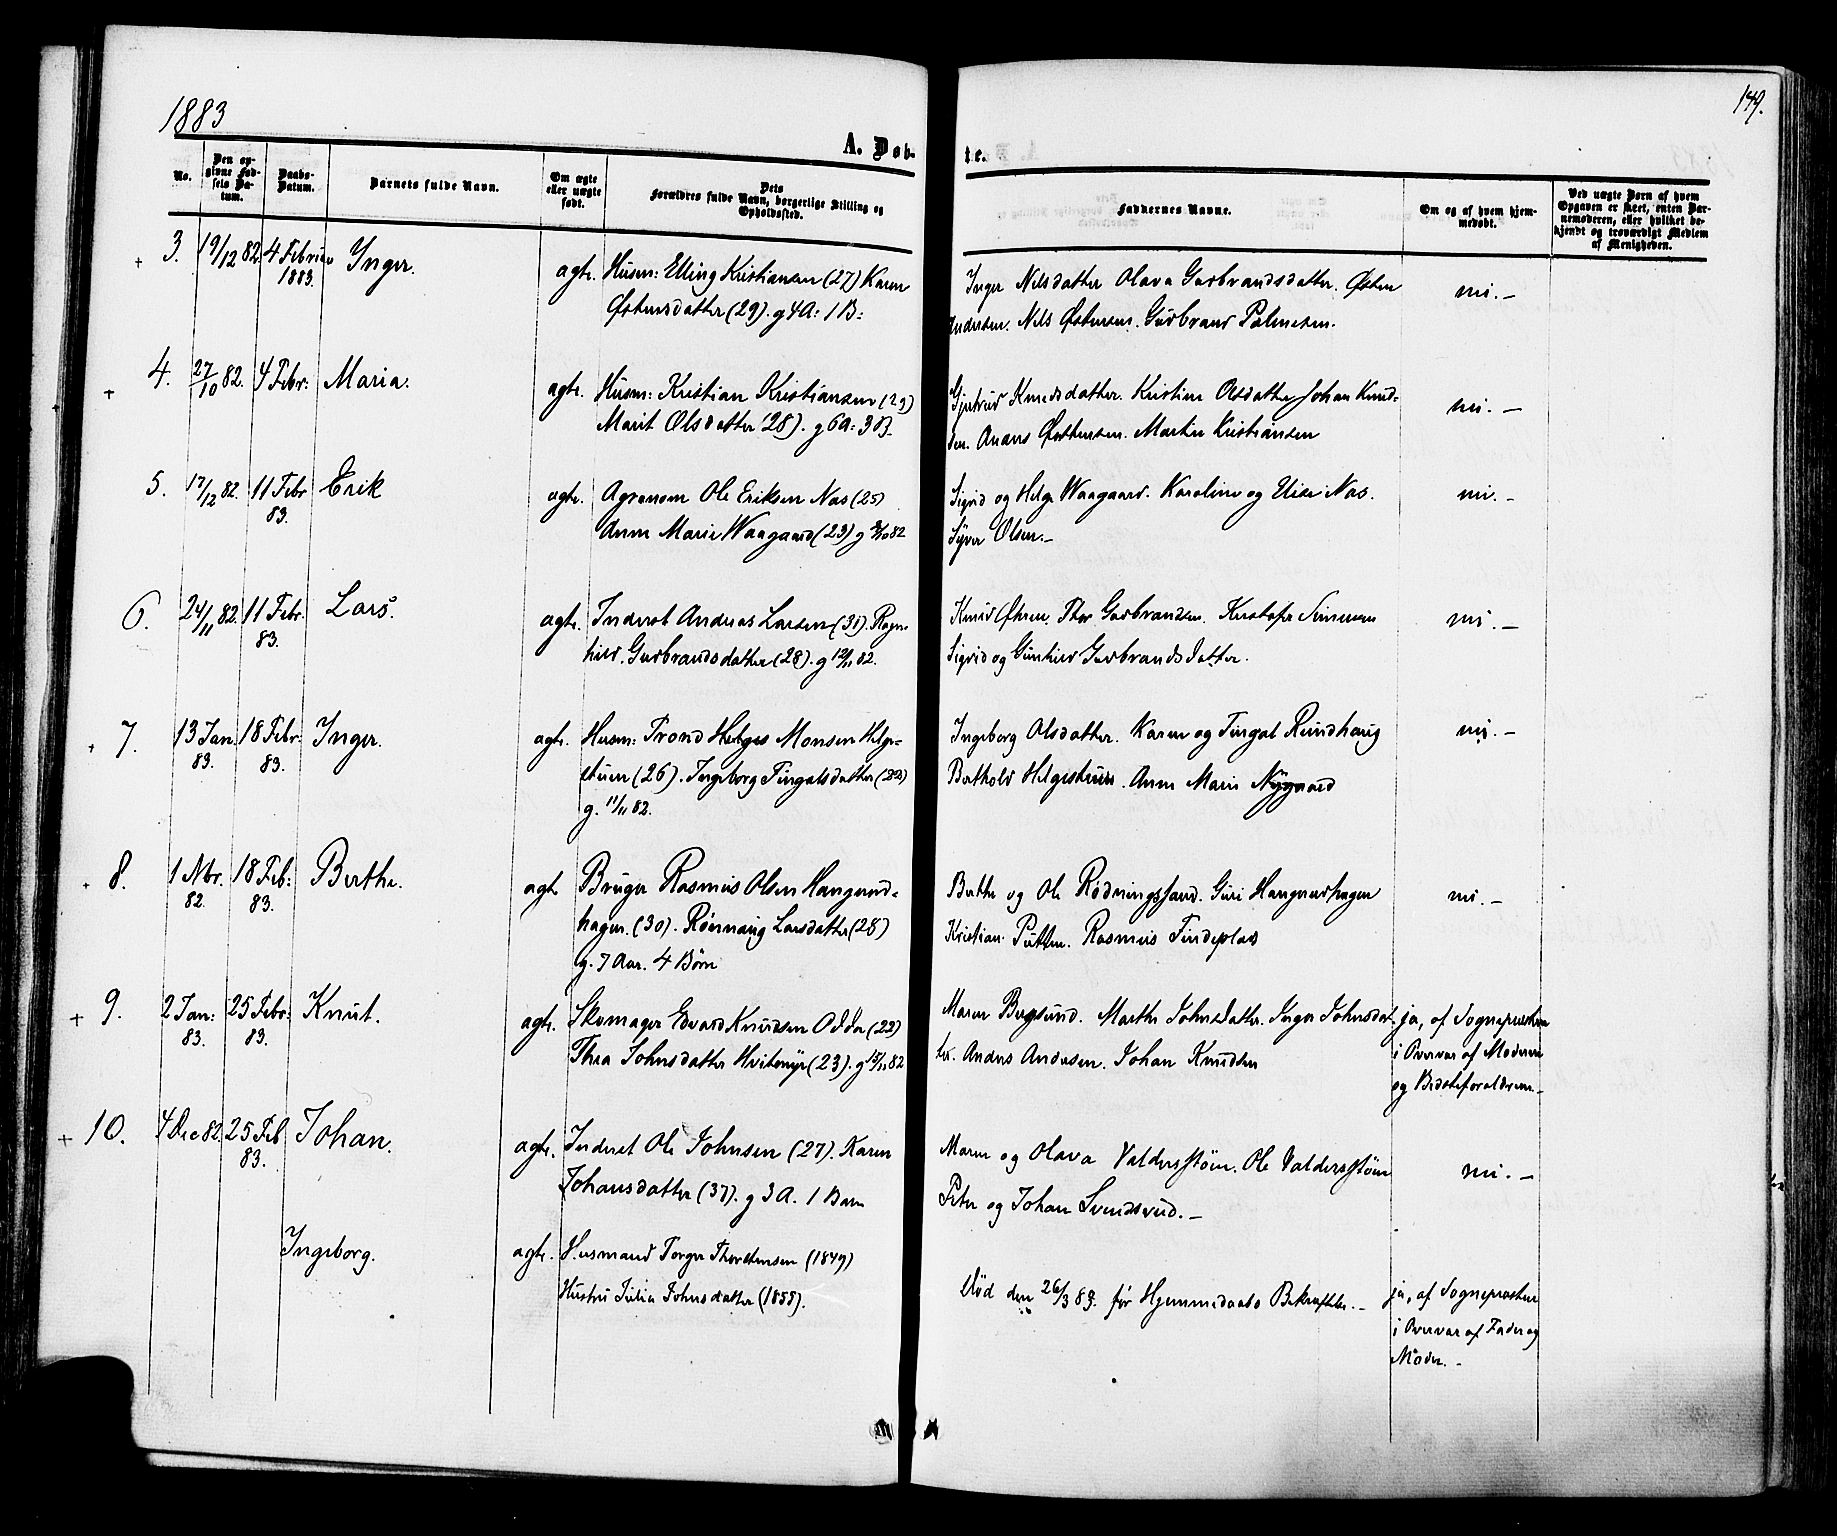 1883
149.
A. Døb-
te.
No.
Den op-
givne Fød-
sels Da-
tum.
Daabs-
Datum.
Barnets fulde Navn.
Om ægte
eller uægte
født.
Dets
Forældres fulde Navn, borgerlige Stilling og
Opholdssted.
Faddernes Navne.
Om og af hvem hjem-
medøbt.
Ved uægte Børn af hvem
Opgaven er skeet, enten Bar-
nemoderen, eller hvilket be-
kjendt og troværdigt Medlem
af Menigheden.
3. 19/12 82. 4 Februar
1883.
Inger.
ægte. Husm: Elling Kristiansen (27) Karen
Østensdatter (29). g 4A: 1 B:
Inger Nilsdatter Olava Gudbrandsdatter. Østen
Andersen. Nils Østensen. Gudbrand Palmesen.
nei. -
4. 27/10 82. 4 Febr: Maria.
ægte. Husm: Kristian Kristiansen (29)
Marit Olsdatter (28). g 6A: 3 B.
Gjertrud Knudsdatter. Kristine Olsdatter Johan Knud-
sen. Anders Østensen. Martin Kristiansen
nei. -
5. 17/12 82. 11 Febr
83.
Erik
ægte. Agronom Ole Eriksen Næs (25)
Anne Marie Waagaard (23) g 82
Sigrid og Helge Waagaard. Karoline og Elise Næs.
Syver Olsen. -
nei. -
6. 24/11 82. 11 Febr.
83.
Lars.
ægte. Inderst Andreas Larsen (31). Ragn-
hild. Gudbrandsdatter (28). g 12/11 82.
Knud Øhren. Thor Gudbrandsen. Kristofer Simensen
Sigrid og Gunhild Gudbrandsdatter.
nei. -
7. 13 Jan.
83.
18 Febr.
83.
Inger.
ægte. Husm: Trond Helges Monsen Helge-
stuen (26). Ingeborg Tingalsdatter (22)
g. 11/11 82.
Ingeborg Olsdatter. Karen og Tingal Rundhaug
Berthold Helgestuen. Anne Marie Nygaard
nei. -
8. 1 Nbr.
82.
18 Feb:
83.
Berthe.
ægte Bruger Rasmus Olsen Haugerud-
hagen. (30). Rønnaug Larsdatter (28)
g. 7 Aar. 4 Børn
Berthe og Ole Rødningssand. Guri Haugerudhagen
Kristian Putten. Rasmus Findeplads
nei. -
9. 2 Jan:
83.
25 Febr:
83.
Knut.
ægte. Skomager Edvard Knudsen Odden (22)
Thea Johnsdatter Hvitemyr (23). g 82
Maren Bergsund. Marthe Johnsdatter. Inger Johnsdat-
ter. Anders Andersen. Johan Knudsen
ja, af Sognepresten
i Overvær af Moderen
og Bedsteforældrene. -
10. 4 Dec 82. 25 Feb
83.
Johan.
ægte. Inderst Ole Johnsen (27). Karen
Johansdatter (37). g 3 A. 1 Barn
Maren og Olava Valdersstøen. Ole Valdersstøen
Peter og Johan Svendsrud. -
nei. -
Ingeborg.
ægte. Husmand Torger Thorstensen (1849)
Hustru Julia Johnsdatter (1855).
Død den 26/3 83. før Hjemmedaabs Bekræftelse. -
ja, af Sognepresten
i Overvær af Fader og
Moder. -